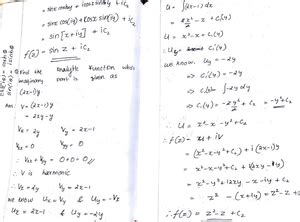 = sinx coshy + icosx sinhy + ic₂
= sinx cos(iy) + cosx sin(iy) + ic₂
= sin[x+iy] + ic₂
f(z) = sin z + ic₂
Find the analytic function whose
imaginary part is given as
(2x-1)y
Ans: V = (2x-1)y
= 2xy - y
Vx = 2y Vy = 2x-1
Vxx = 0 Vyy = 0
∴ Vxx + Vyy = 0+0 = 0 //
∴ V is harmonic
∴ Vx = 2y Vy = 2x-1
we know Ux = Vy & Uy = -Vx
Ux = 2x-1 & Uy = -2y
U = ∫(2x-1) dx
= 2x²/2 - x + C₁(y)
U = x² - x + C₁(y)
∴ Uy = C₁'(y)
we know, Uy = -2y
⇒ C₁'(y) = -2y
⇒ C₁(y) = ∫-2y dy
⇒ C₁(y) = -2y²/2 + C₂ = -y² + C₂
∴ U = x² - x - y² + C₂
∴ f(z) = u + iV
= (x² - x - y² + C₂) + i(2x-1)y
= x² - x - y² + C₂ + i2xy - iy
= x² - y² + i2xy - x - iy + C₂
= z² - (x+iy) + C₂ = z² - z + C₂
∴ f(z) = z² - z + C₂